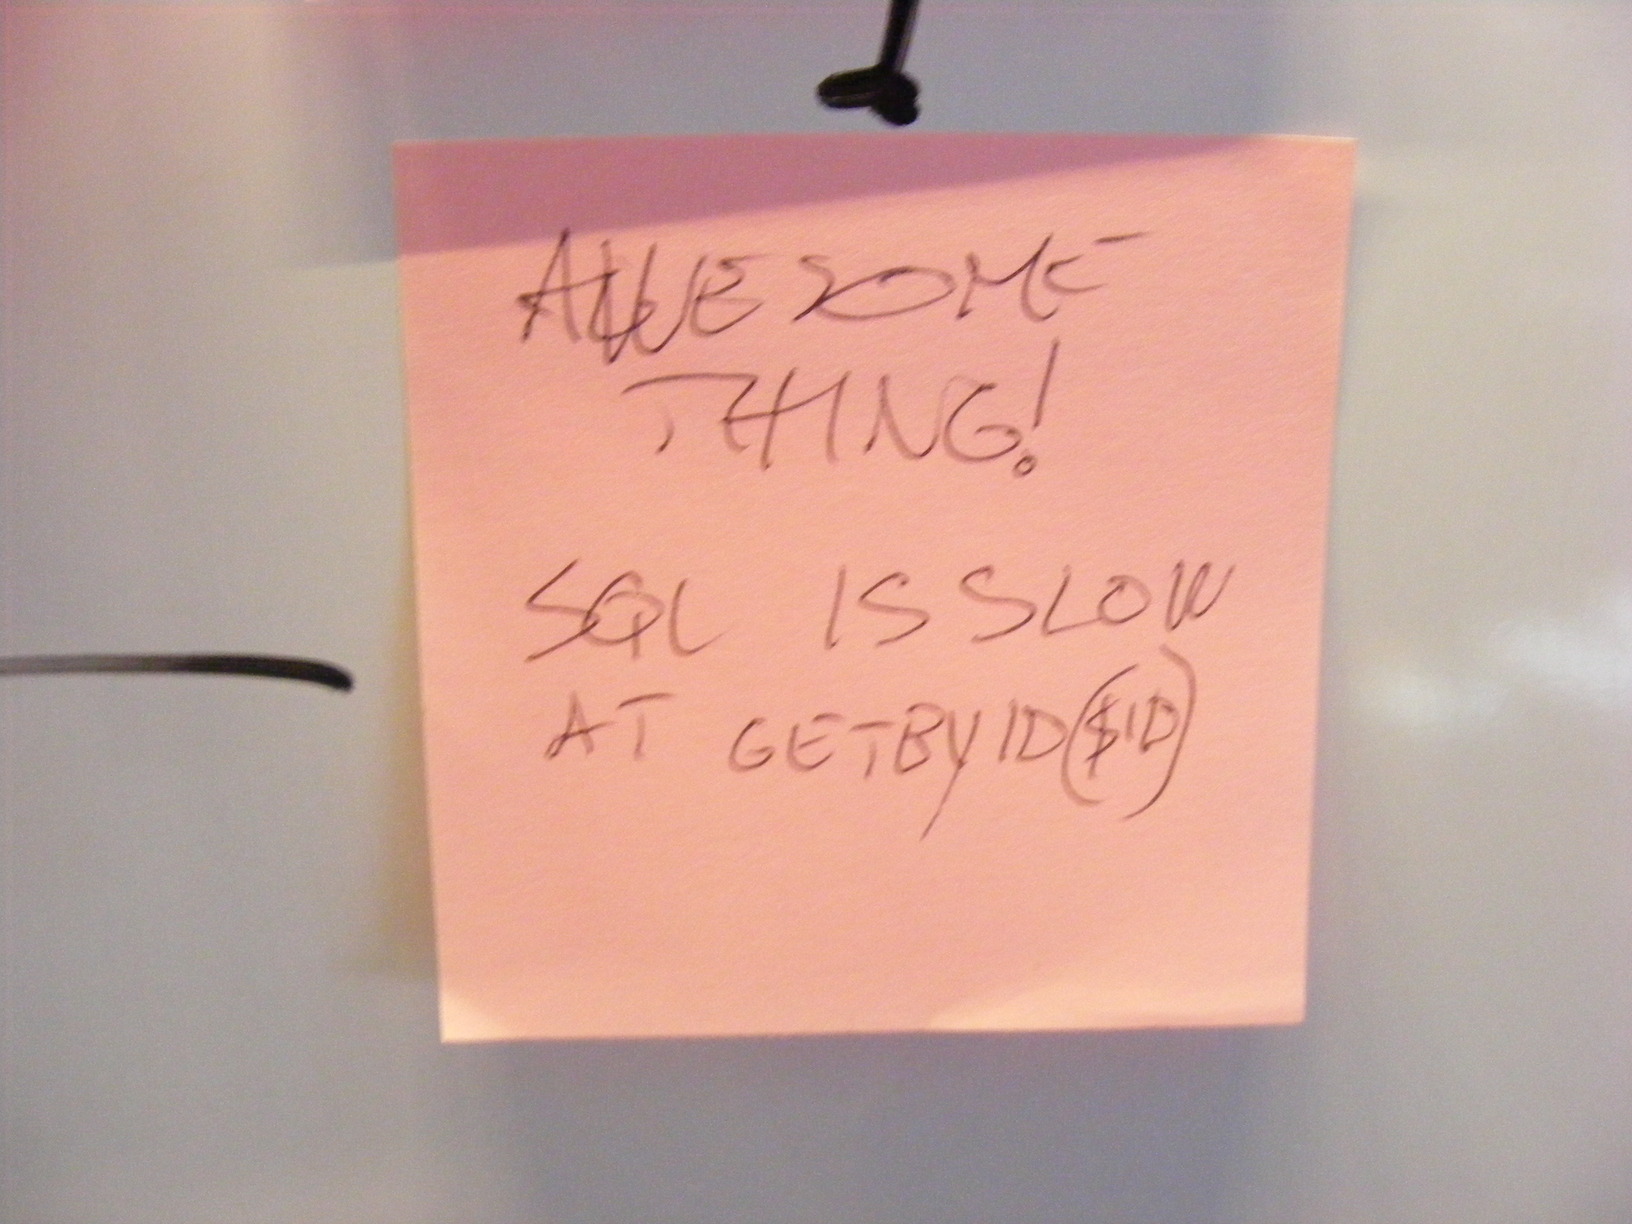 AWESOME
THING!
SQL IS SLOW
AT GETBYID($ID)